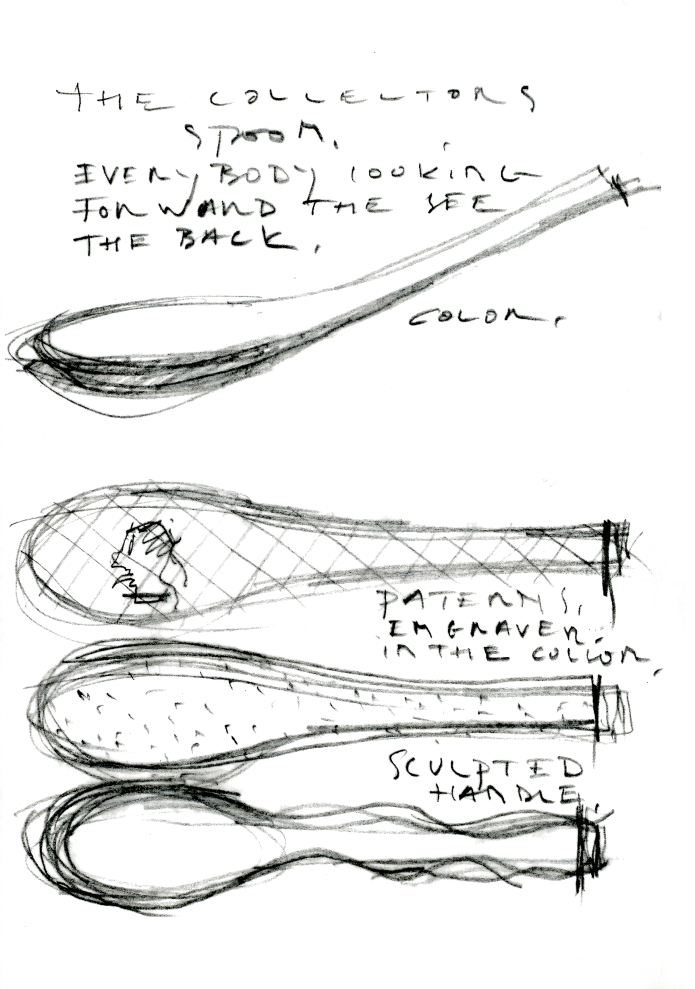 THE COLLECTORS
SPOON.
EVERYBODY LOOKING
FORWARD THE SEE
THE BACK.
COLOR.
PATERNS,
ENGRAVER.
IN THE COLLOR.
SCULPTED
HANDLE.